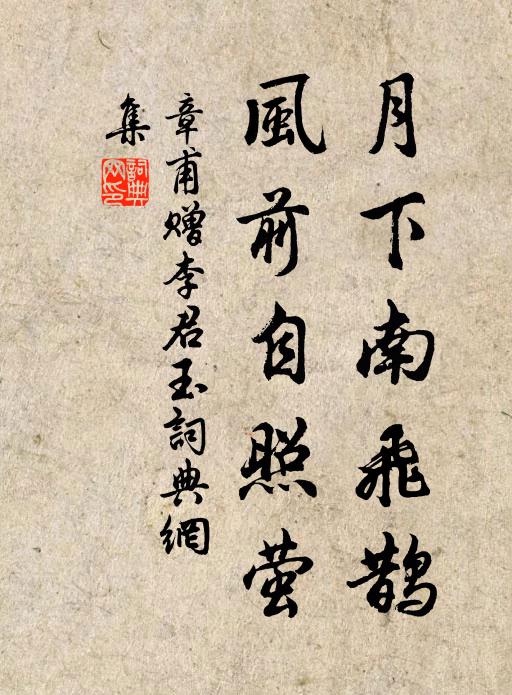 月下南飛鵲
風前自照萤
章甫赠李君玉詞典網
集
詞典網印